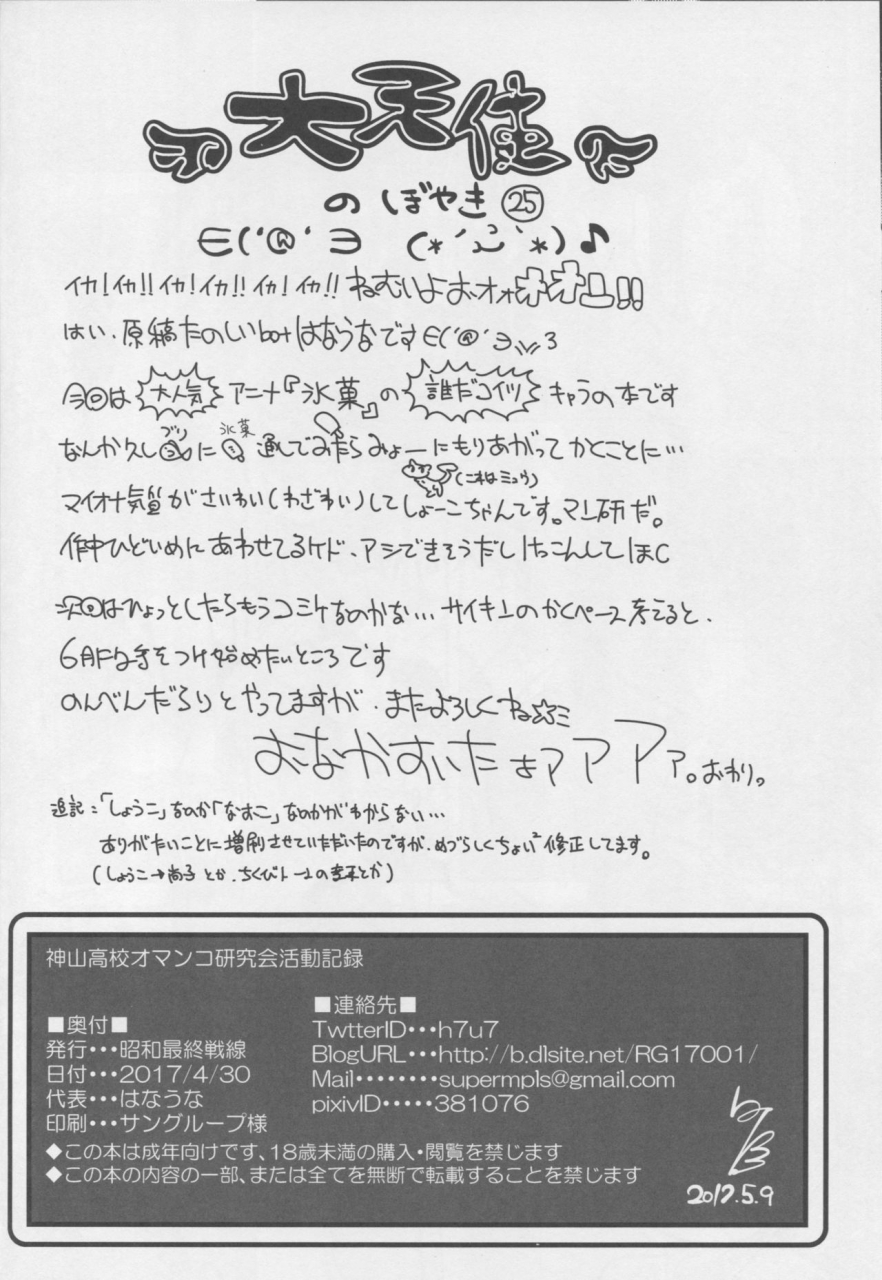 大天使
のぼやき㉕
∈(´@`∋ (*´ω`*)♪
イカ!イカ!!イカ!イカ!!イカ!イカ!!ねむいよおオォオオユ!!
はい、原稿たのしいbotはなうなです∈(´@`∋彡3
今回は大人気アニメ『氷菓』の誰だコイツキャラの本です
なんか久しブリに氷菓通しでみたらみょーにもりあがってかくことに…
マイオナ気質がさいわい(わざわい)して
(これはミュウ)
しょーこちゃんです。マン研だ。
作中ひどいめにあわせてるケド、アシできそうだしけっこんしてほC
次回はひょっとしたらもうコミケなのかな…サイキンのかくペース考えると、
6月には手をつけ始めたいところです
のんべんだらりとやってますが、またよろしくね☆ミ
おなかすいたよアアアァ。おわり。
追記:「しょうこ」なのか「なおこ」なのかがわからない…
ありがたいことに増刷させていただいたのですが、めづらしくちょい²修正してます。
(しょうこ→尚子とか、ちくびトーンの
神山高校オマンコ研究会活動記録
■奥付■
発行・・・昭和最終戦線
日付・・・2017/4/30
代表・・・はなうな
印刷・・・サングループ様
■連絡先■
TwtterID・・・h7u7
BlogURL・・・http://b.dlsite.net/RG17001/
Mail・・・・・・・・supermpls@gmail.com
pixivID・・・・・381076
◆この本は成年向けです、18歳未満の購入・閲覧を禁じます
◆この本の内容の一部、または全てを無断で転載することを禁じます
2017.5.9